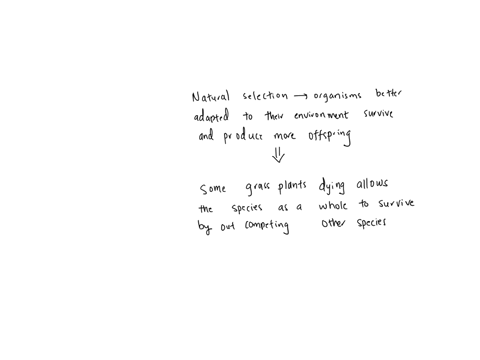 Natural selection → organisms better
adapted to their environment survive
and produce more offspring
⇓
Some grass plants dying allows
the species as a whole to survive
by out competing other species